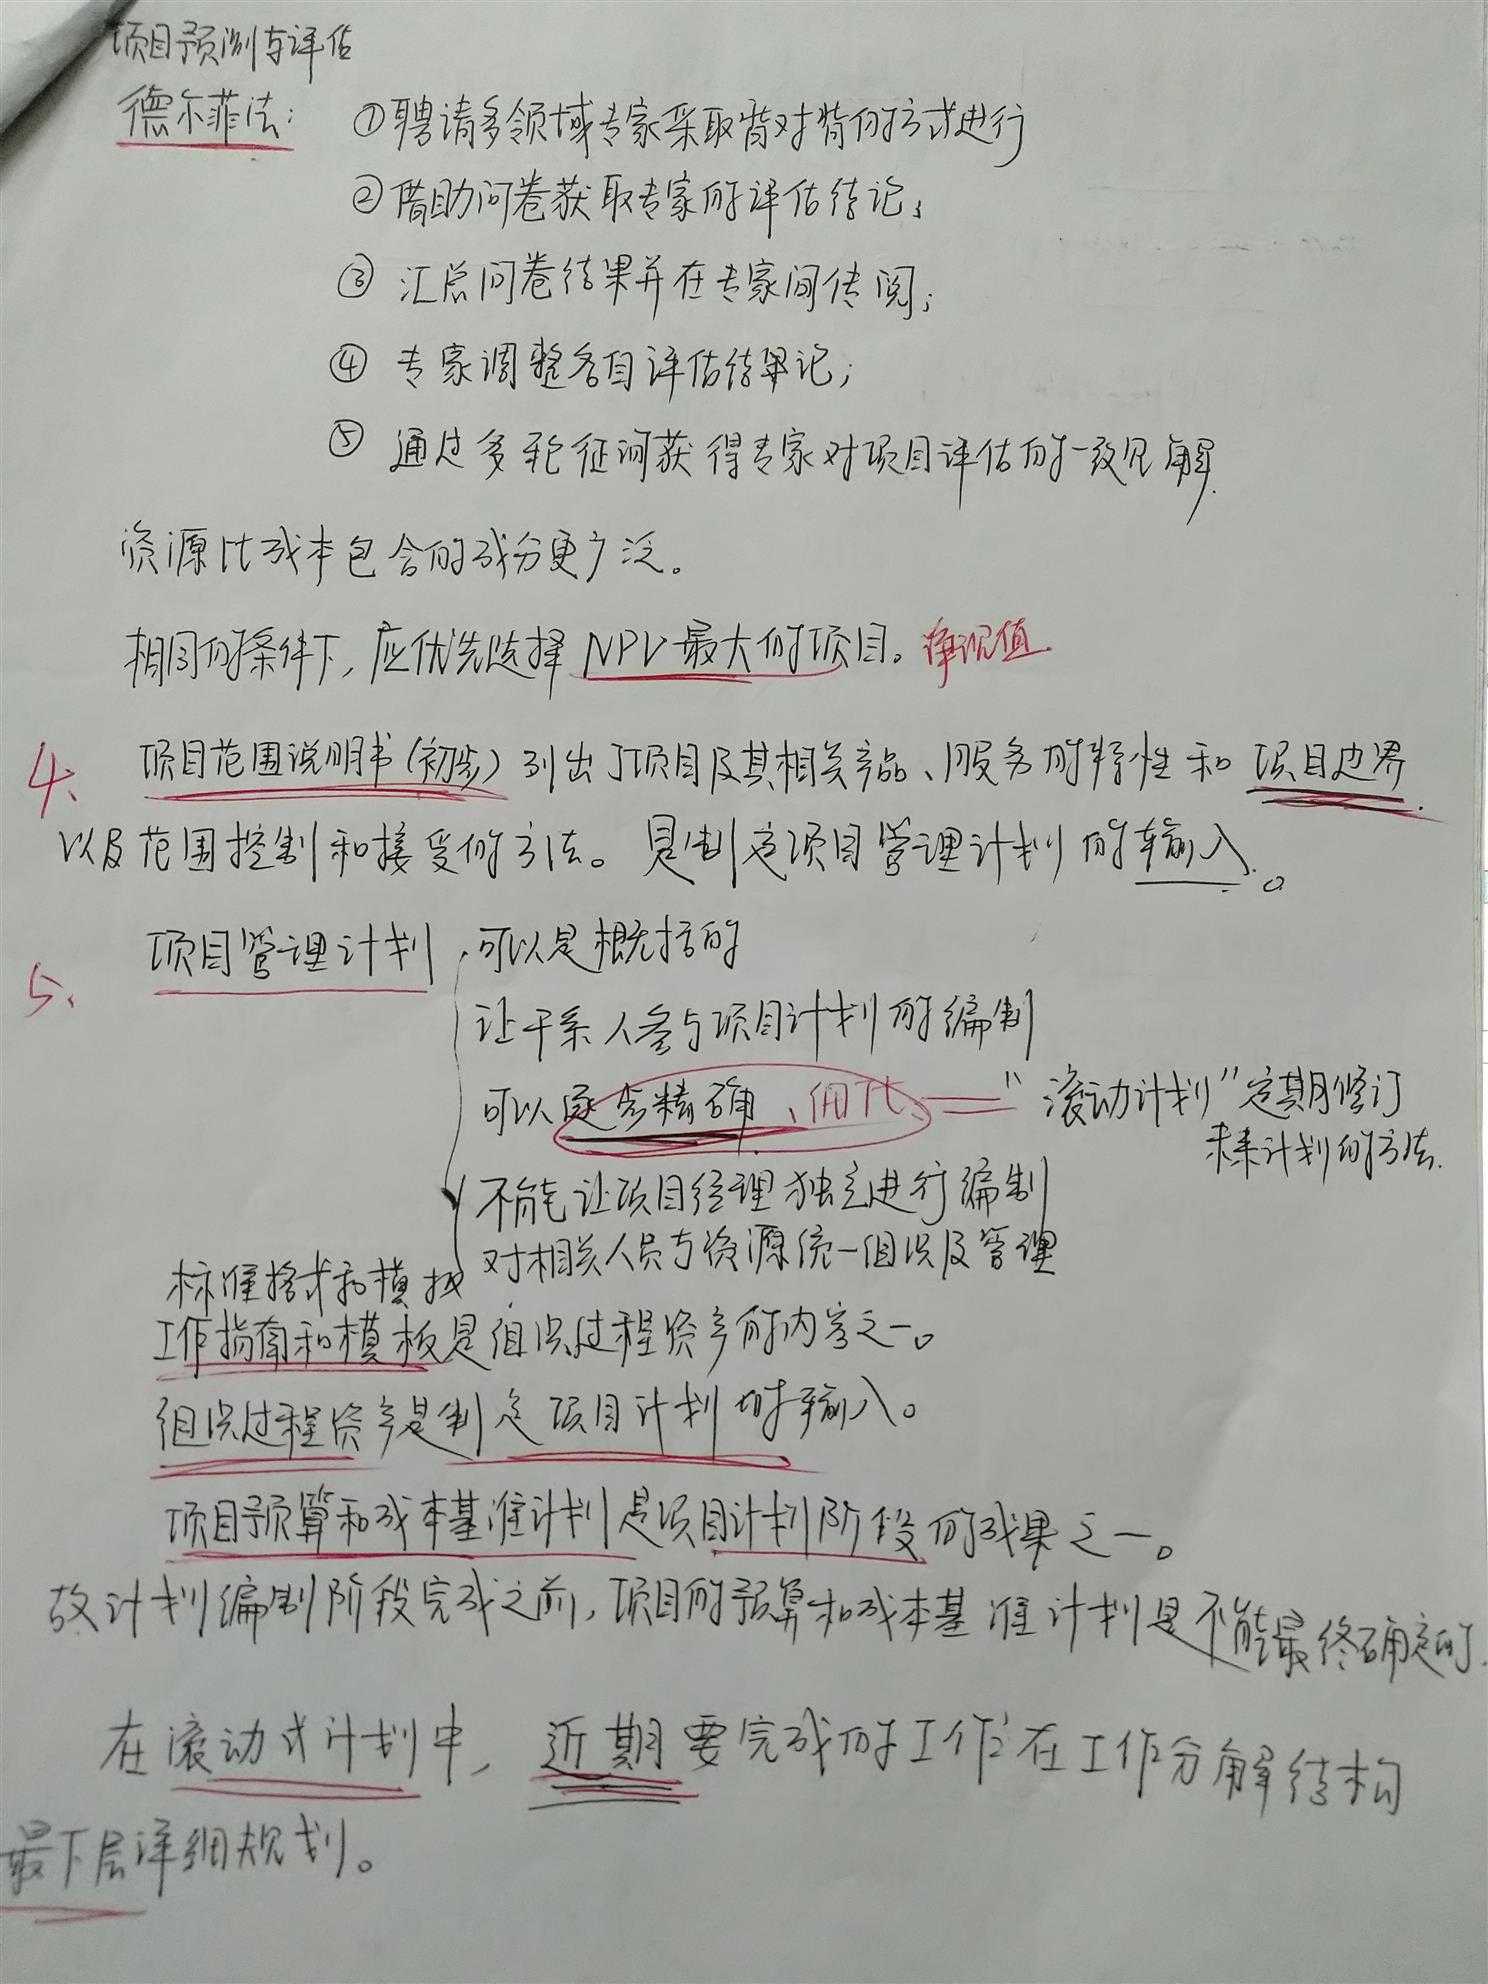 项目预测与评估
德尔菲法: ①聘请多领域专家采取背对背的方式进行
②借助问卷获取专家的评估结论;
③ 汇总问卷结果并在专家间传阅;
④ 专家调整各自评估结果记;
⑤ 通过多轮征询获得专家对项目评估的一致见解.
资源比成本包含的成分更广泛。
相同的条件下,应优先选择 NPV最大的项目。净现值
4、 项目范围说明书(初步)列出了项目及其相关产品、服务的特性和项目边界
以及范围控制和接受的方法。是制定项目管理计划的输入。
5、 项目管理计划 可以是概括的
让干系人参与项目计划的编制
可以逐步精确、细化 "滚动计划"定期修订
未来计划的方法.
不能让项目经理独立进行编制
对相关人员与资源统一组织及管理
标准格式和模板
工作指南和模板是组织过程资产的内容之一。
组织过程资产是制定项目计划的输入。
项目预算和成本基准计划是项目计划阶段的成果之一。
故计划编制阶段完成之前,项目的预算和成本基准计划是不能最终确定的.
在滚动式计划中,近期要完成的工作在工作分解结构
最下层详细规划。